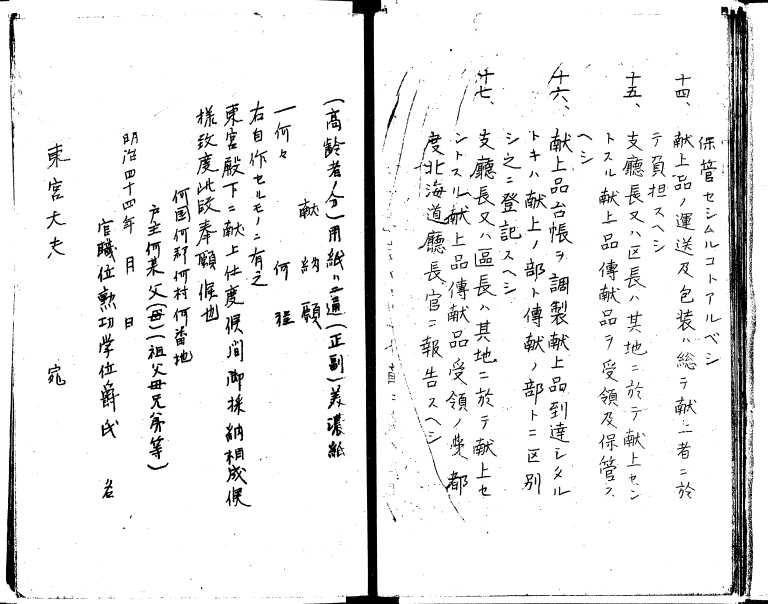 保管セシムルコトアルベシ
十四、献上品ノ運送及包装ハ総テ献上者ニ於
テ負担スヘシ
十五、支廳長又ハ区長ハ其地ニ於テ献上セン
トスル献上品傳献品ヲ受領及保管ス
ヘシ
十六、献上品台帳ヲ調製献上品到達シタル
トキハ献上ノ部ト傳献ノ部トニ区別
シ之ニ登記スヘシ
十七、支廳長又ハ區長ハ其地ニ於テ献上セ
ントスル献上品傳献品受領ノ都
度北海道廳長官ニ報告スヘシ
(高齢者ノ分)用紙ハ二通(正副)美濃紙
献納願
一何々 何程
右自作セルモノニ有之
東宮殿下ニ献上仕度候間御採納相成候
様致度此段奉願候也
何国何郡何村何番地
戸主何某父(母)(祖父母兄弟等)
明治四十四年 月 日
官職位勲功学位爵氏 名
東宮大夫 宛